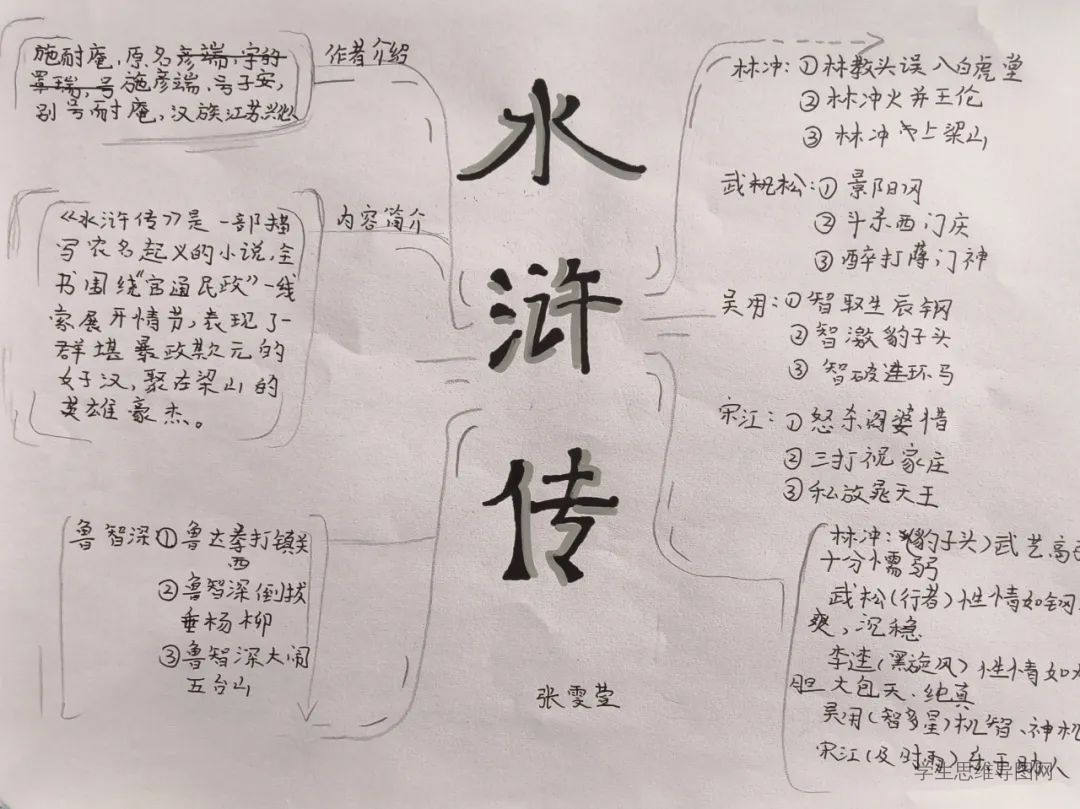 水
浒
传
张雯莹
作者介绍
施耐庵,原名彦端,字的
罩瑞,号施彦端,号子安,
别号耐庵,汉族江苏兴化
内容简介
《水浒传》是一部描
写农名起义的小说,全
书围绕"官逼民政"一线
家展开情节,表现了一
群堪暴政欺元的
好汉,聚在梁山的
英雄豪杰。
鲁智深①鲁达拳打镇关
西
②鲁智深倒拔
垂杨柳
③鲁智深大闹
五台山
林冲:①林教头误八白虎堂
②林冲火并王伦
③林冲上梁山
武松:①景阳冈
②斗杀西门庆
③醉打蒋门神
吴用:①智取生辰钢
②智激豹子头
③智破连环马
宋江:①怒杀阎婆惜
②三打祝家庄
③私放晁天王
林冲:(豹子头)武艺高
十分懦弱
武松(行者)性情如钢
爽,沉稳
李逵(黑旋风)性情如
胆大包天、纯真
吴用(智多星)机智、神机
宋江(及时雨)乐于助人
学生思维导图网